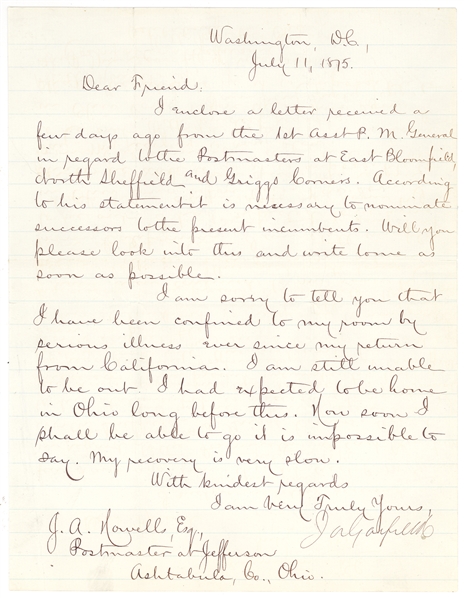 Washington, D.C.,
July 11, 1875.
Dear Friend:
I enclose a letter received a
few days ago from the 1st Asst P. M. General
in regard to the Postmasters at East Bloomfield,
North Sheffield and Griggs Corners. According
to his statement it is necessary to nominate
successors to the present incumbents. Will you
please look into this and write to me as
soon as possible.
I am sorry to tell you that
I have been confined to my room by
serious illness ever since my return
from California. I am still unable
to be out. I had expected to be home
in Ohio long before this. How soon I
shall be able to go it is impossible to
say. My recovery is very slow.
With kindest regards
I am Very Truly Yours,
J A Garfield
J. A. Howells, Esq.,
Postmaster at Jefferson
Ashtabula, Co., Ohio.